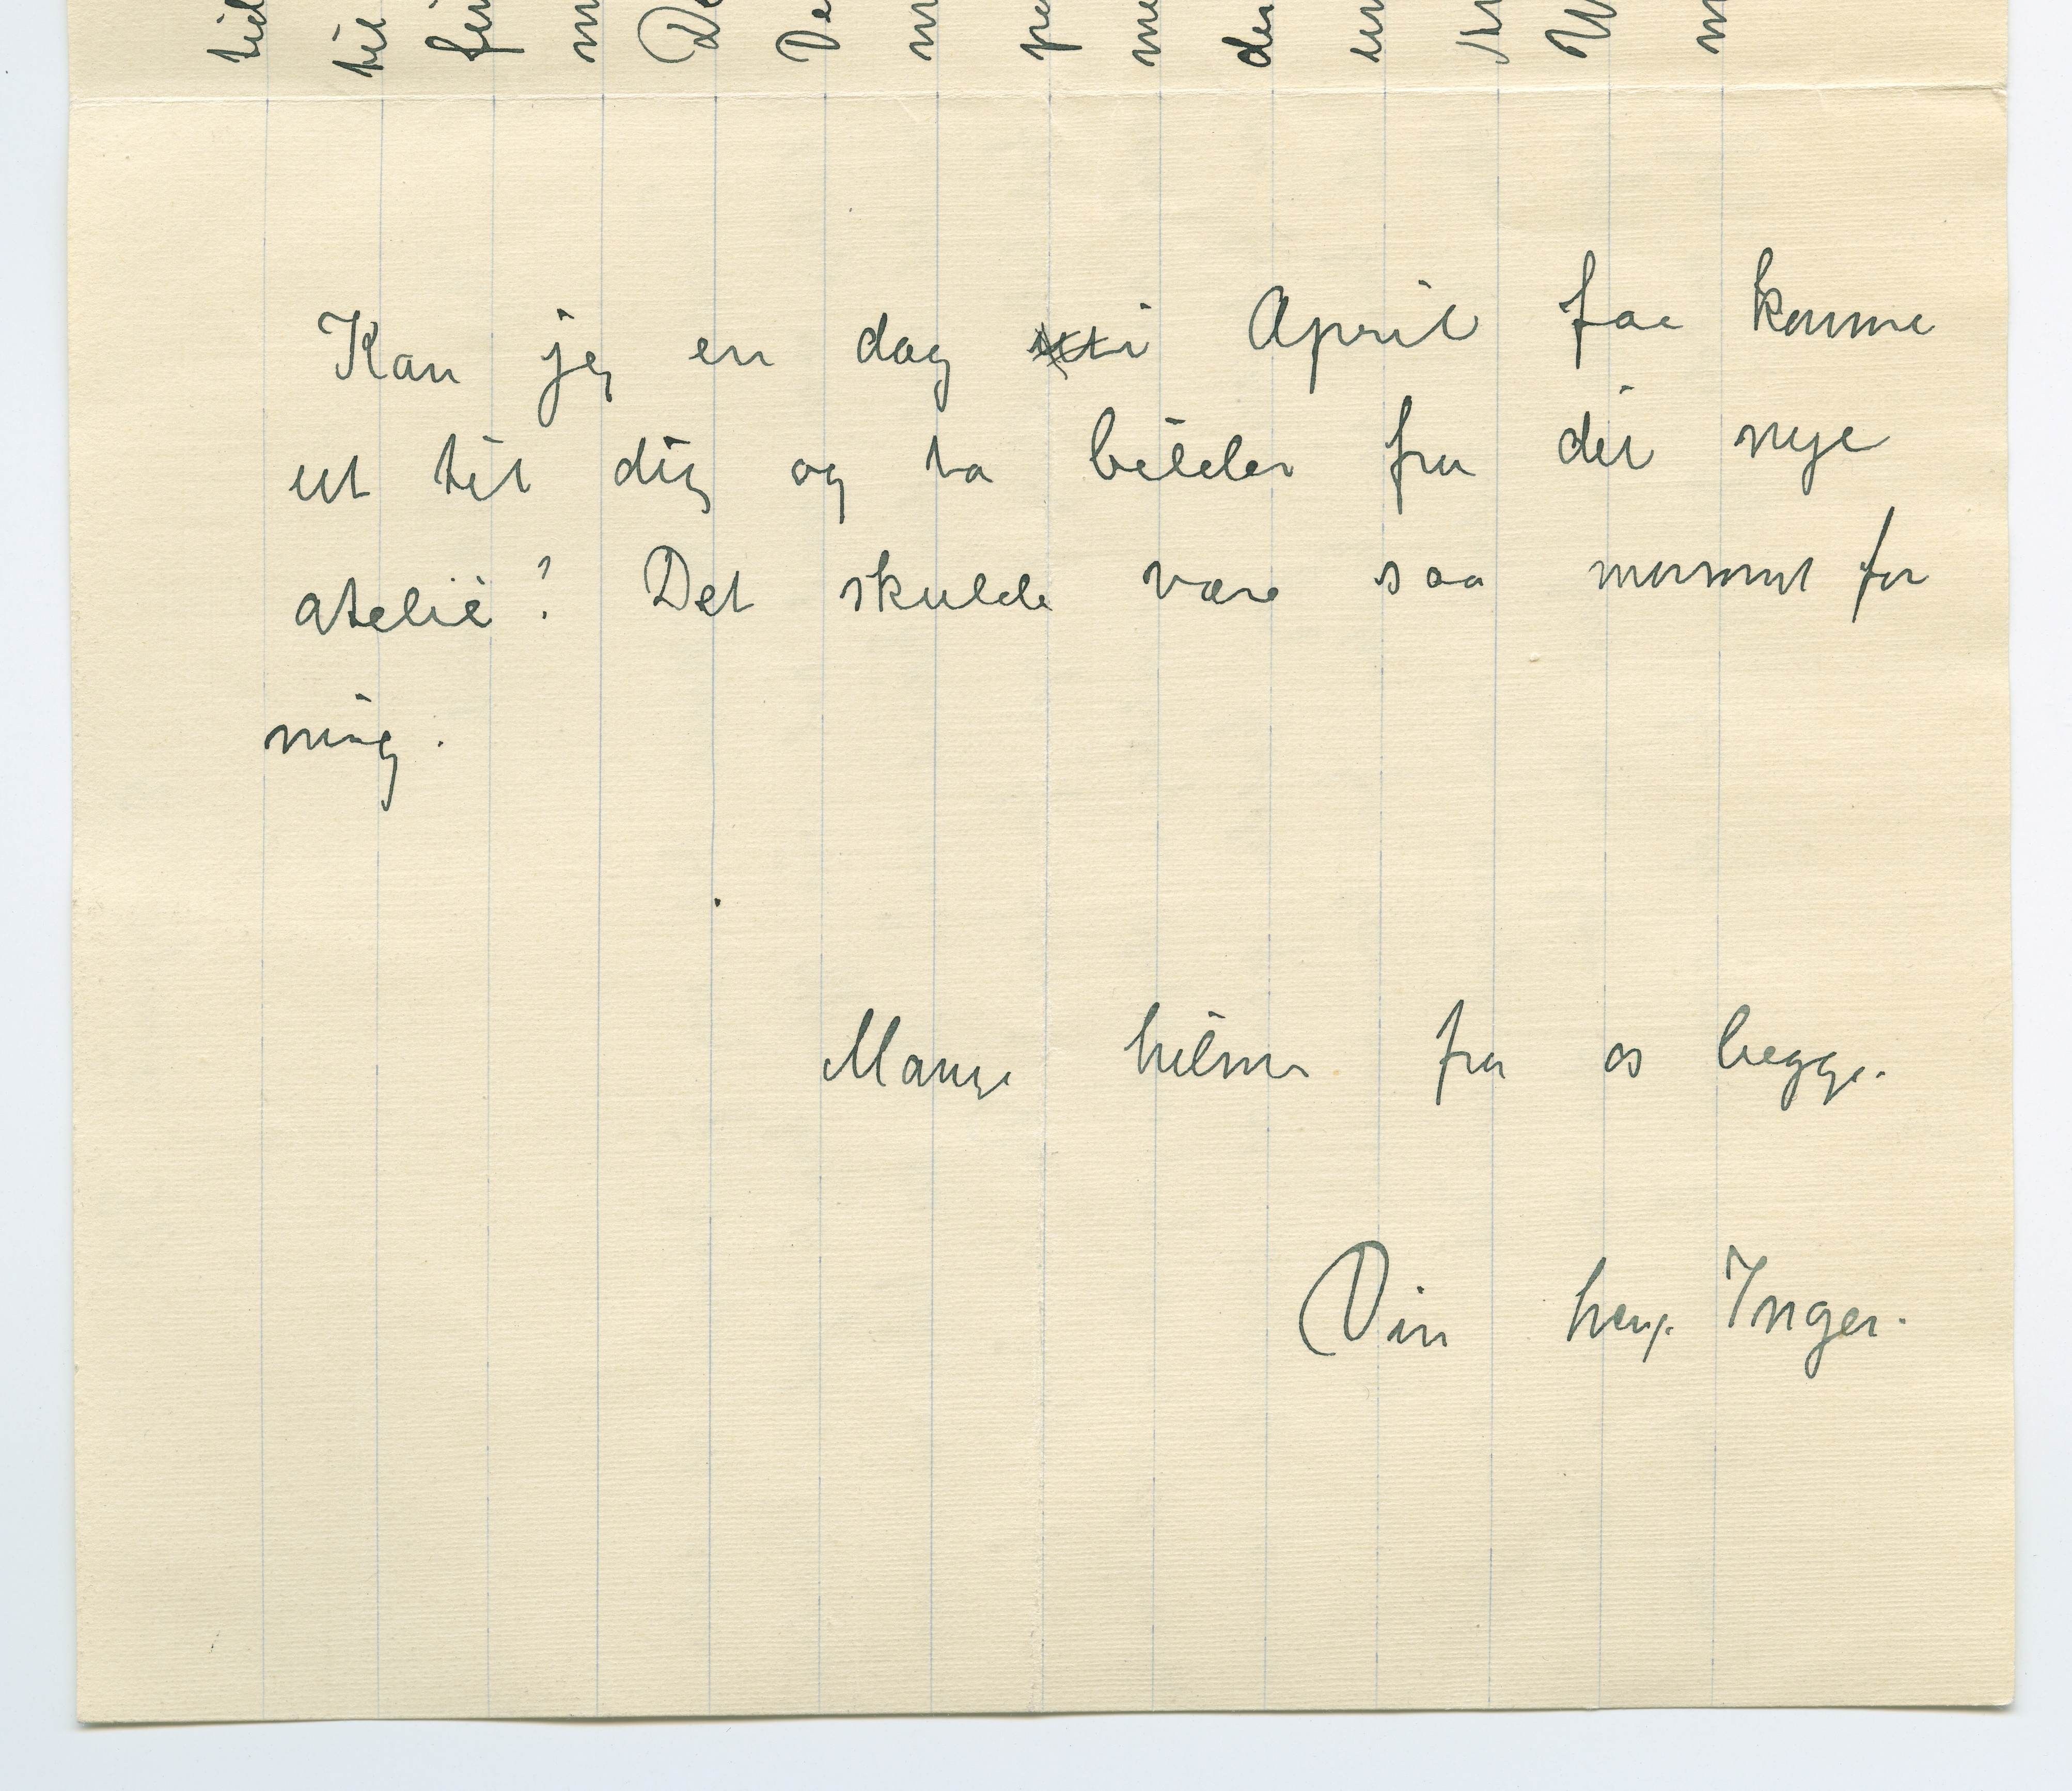 Kan jeg en dag i April faa komme
ut til dig og ta bilder fra dit nye
atelié? Det skulde være saa morsomt for
mig.
Mange hilsner fra os begge.
Din heng. Inger.